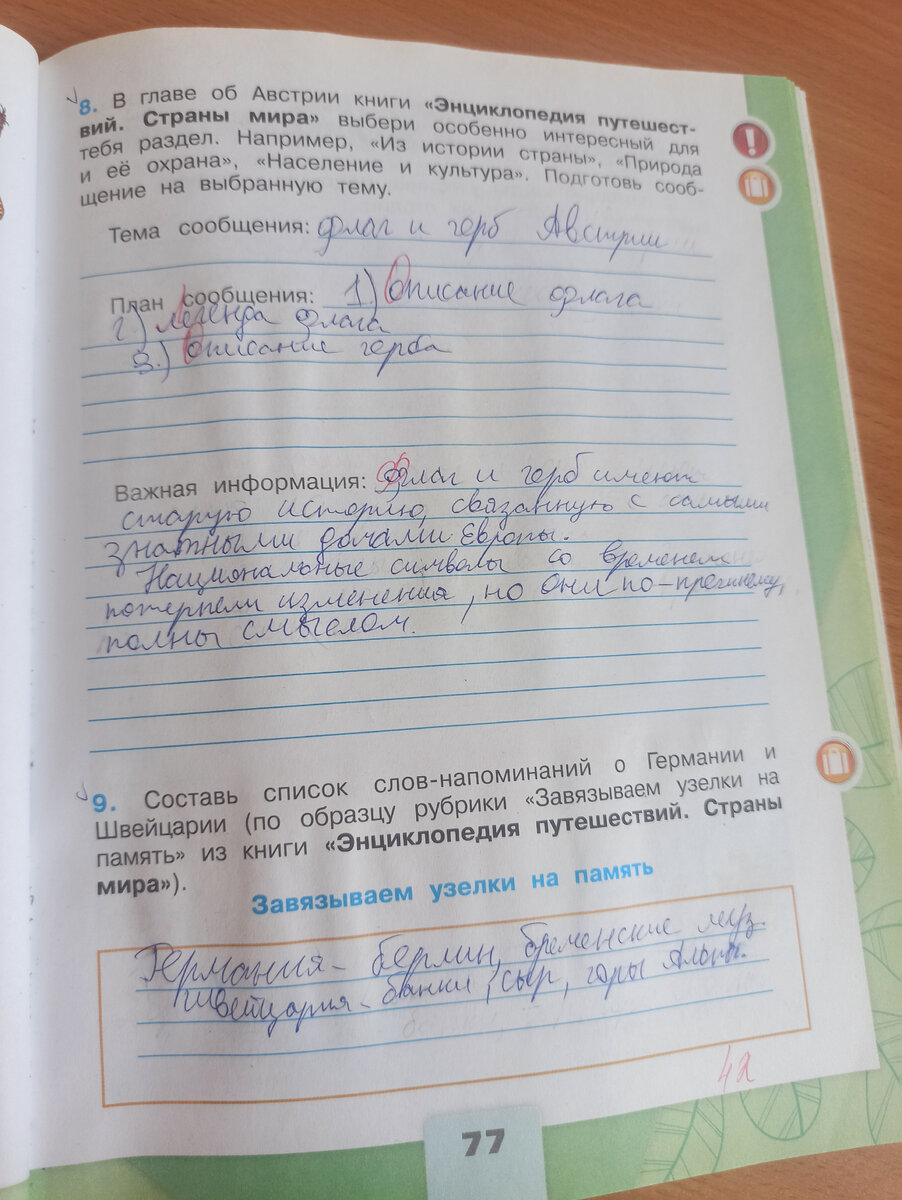 8. В главе об Австрии книги «Энциклопедия путешест-
вий. Страны мира» выбери особенно интересный для
тебя раздел. Например, «Из истории страны», «Природа
и её охрана», «Население и культура». Подготовь сооб-
щение на выбранную тему.
Тема сообщения: флаг и герб Австрии
План сообщения: 1) Описание флага
2) Легенда флага
3.) Описание герба
Важная информация: Флаг и герб имеют
старую историю, связанную с самыми
знатными домами Европы.
Национальные символы со временем
потерпели изменения, но они по-прежнему
полны смыслом.
9. Составь список слов-напоминаний о Германии и
Швейцарии (по образцу рубрики «Завязываем узелки на
память» из книги «Энциклопедия путешествий. Страны
мира»).
Завязываем узелки на память
Германия - берлин, бременские муз.
Швейцария - банки, сыр, горы Альпы.
77